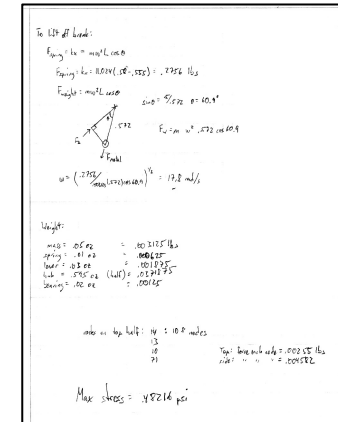 To lift off break:
Fspring = kx = mω²L cosθ
Fspring = kx = 11.024(.58-.555) = .2756 lbs
Fweight = mω²L cosθ
sinθ = /.572 θ = 60.9°
θ
.572
Fw = m ω² .572 cos 60.9
Fs
ω = (.2756/ (.572)cos 60.9)^½ = 17.8 rad/s
Weight:
mass = .05 oz = .003125 lbs
spring = .01 oz = .000625
lever = .03 oz = .001875
hub = .595 oz (half) = .0371875
bearing = .02 oz = .00125
nodes in top half: 14 : 108 nodes
13
10
71
Top: force each node = .00255 lbs
side: " " " = .004582
Max stress = .48216 psi